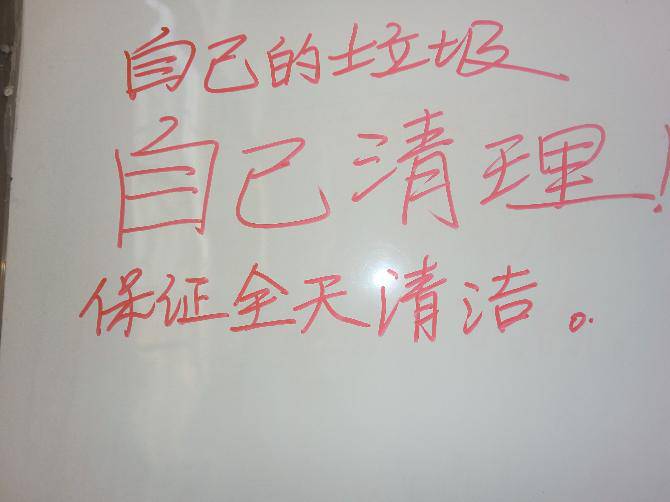 自己的垃圾
自己清理!
保证全天清洁。